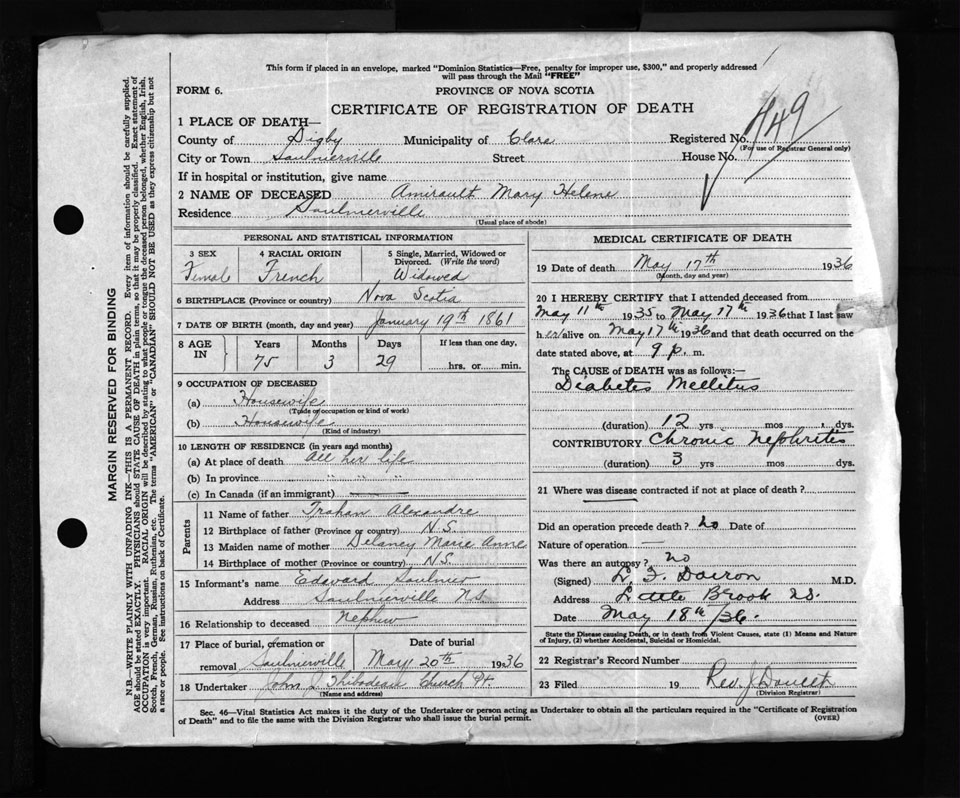 This form if placed in an envelope, marked "Dominion Statistics—Free, penalty for improper use, $300," and properly addressed
will pass through the Mail "FREE"
FORM 6. PROVINCE OF NOVA SCOTIA
CERTIFICATE OF REGISTRATION OF DEATH
1 PLACE OF DEATH—
County of Digby Municipality of Clare Registered No. 449
(For use of Registrar General only)
City or Town Saulnierville Street House No.
If in hospital or institution, give name
2 NAME OF DECEASED Amirault Mary Helene
Residence Saulnierville
(Usual place of abode)
PERSONAL AND STATISTICAL INFORMATION
3 SEX 4 RACIAL ORIGIN 5 Single, Married, Widowed or
Divorced. (Write the word)
Female French Widowed
6 BIRTHPLACE (Province or country) Nova Scotia
7 DATE OF BIRTH (month, day and year) January 19th 1861
8 AGE IN Years Months Days If less than one day,
75 3 29 hrs. or min.
9 OCCUPATION OF DECEASED
(a) Housewife
(Trade of occupation or kind of work)
(b) Housewife
(Kind of industry)
10 LENGTH OF RESIDENCE (in years and months)
(a) At place of death All her life
(b) In province " " "
(c) In Canada (if an immigrant)
Parents
11 Name of father Trahan Alexandre
12 Birthplace of father (Province or country) N.S.
13 Maiden name of mother Delaney Marie Anne
14 Birthplace of mother (Province or country) N.S.
15 Informant's name Edward Saulnier
Address Saulnierville N.S.
16 Relationship to deceased Nephew
17 Place of burial, cremation or Date of burial
removal Saulnierville May 20th 1936
18 Undertaker John J Thibodeau Church Pt.
(Name and address)
MEDICAL CERTIFICATE OF DEATH
19 Date of death May 17th 1936
(Month, day and year)
20 I HEREBY CERTIFY that I attended deceased from
May 11th 1935 to May 17th 1936 that I last saw
her alive on May 17th 1936 and that death occurred on the
date stated above, at 9 p. m.
The CAUSE of DEATH was as follows:—
Diabetes Mellitus
(duration) 12 yrs mos dys.
CONTRIBUTORY Chronic Nephritis
(duration) 3 yrs mos dys.
21 Where was disease contracted if not at place of death?
Did an operation precede death? no Date of
Nature of operation —
Was there an autopsy? No
(Signed) M.D.
Address Little Brook N.S.
Date May 18th /36.
State the Disease causing Death, or in death from Violent Causes, state (1) Means and Nature
of Injury, (2) whether Accidental, Suicidal or Homicidal.
22 Registrar's Record Number
23 Filed 19 Rev. J Doucet
(Division Registrar)
Sec. 46—Vital Statistics Act makes it the duty of the Undertaker or person acting as Undertaker to obtain all the particulars required in the "Certificate of Registration
of Death" and to file the same with the Division Registrar who shall issue the burial permit. (OVER)
MARGIN RESERVED FOR BINDING
N.B.—WRITE PLAINLY WITH UNFADING INK—THIS IS A PERMANENT RECORD. Every item of information should be carefully supplied.
AGE should be stated EXACTLY. PHYSICIANS should STATE CAUSE OF DEATH in plain terms, so that it may be properly classified. Exact statement of
OCCUPATION is very important. RACIAL ORIGIN will be described by stating to what people or tongue the deceased person belonged, whether English, Irish,
Scotch, French, German, Russian, Ruthenian, etc. The terms "AMERICAN" or "CANADIAN" SHOULD NOT BE USED as they express citizenship but not
a race or people. See instructions on back of Certificate.